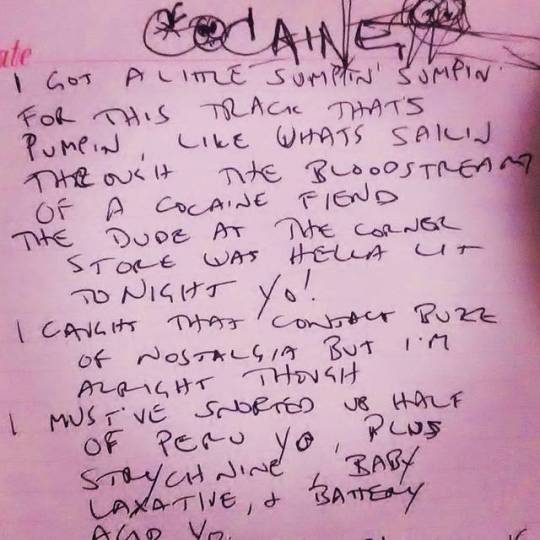 ate
COCAINE
I GOT A LITTLE SUMPIN' SUMPIN'
FOR THIS TRACK THAT'S
PUMPIN, LIKE WHATS SAILIN
THROUGH THE BLOODSTREAM
OF A COCAINE FIEND
THE DUDE AT THE CORNER
STORE WAS HELLA LIT
TONIGHT YO!
I CAUGHT THAT CONTACT BUZZ
OF NOSTALGIA BUT I'M
ALRIGHT THOUGH
I MUST'VE SNORTED UP HALF
OF PERU YO, PLUS
STRYCHNINE, BABY
LAXATIVE, & BATTERY
ACID YO